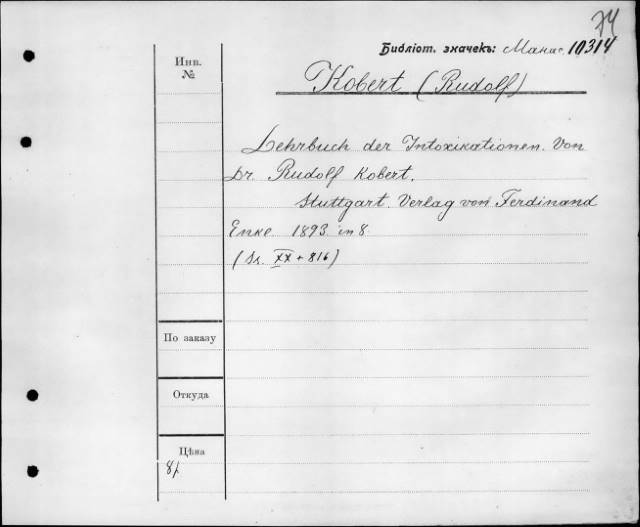 74
Библіот. значекъ: Манас. 10314
Инв.
№
Kobert (Rudolf)
Lehrbuch der Intoxikationen. Von
Dr. Rudolf Kobert.
Stuttgart. Verlag von Ferdinand
Enke 1893. in 8.
(Sr. XX + 816)
По заказу
Откуда
Цѣна
8/